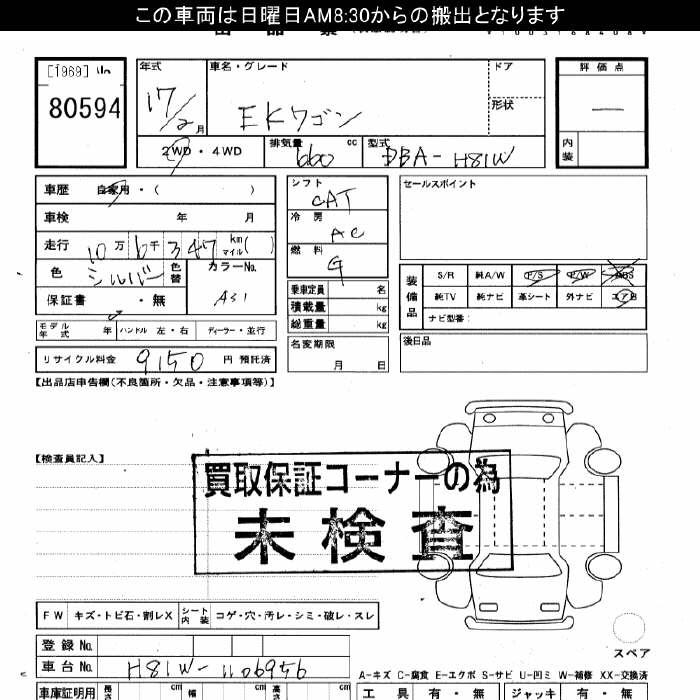 この車両は日曜日AM8:30からの搬出となります
[1969]
80594
年式
17/2月
車名・グレード
EKワゴン
ドア
形状
評価点
内装
2WD・4WD
排気量 660 cc
型式 DBA-H81W
車歴 自家用・( )
車検 年 月
走行 10万6千347 km マイル( )
色 シルバー 色替
カラーNo. A31
保証書 ・無
モデル年式 年 ハンドル 左・右 ディーラー・並行
リサイクル料金 9150 円 預託済
シフト CAT
冷房 AC
燃料 G
乗車定員 名
積載量 kg
総重量 kg
名変期限
月 日
セールスポイント
装備品
S/R 純A/W P/S P/W ABS
純TV 純ナビ 革シート 外ナビ エアB
ナビ型番:
後日品
【出品店申告欄(不良箇所・欠品・注意事項等)】
【検査員記入】
買取保証コーナーの為
未検査
FW キズ・トビ石・割レX シート内装 コゲ・穴・汚レ・シミ・破レ・スレ
スペア
登録No.
車台No. H81W-1106956
A-キズ C-腐食 E-エクボ S-サビ U-凹ミ W-補修 XX-交換済
車庫証明用 長さ cm 幅 cm 高さ cm
工具 有・無 ジャッキ 有・無